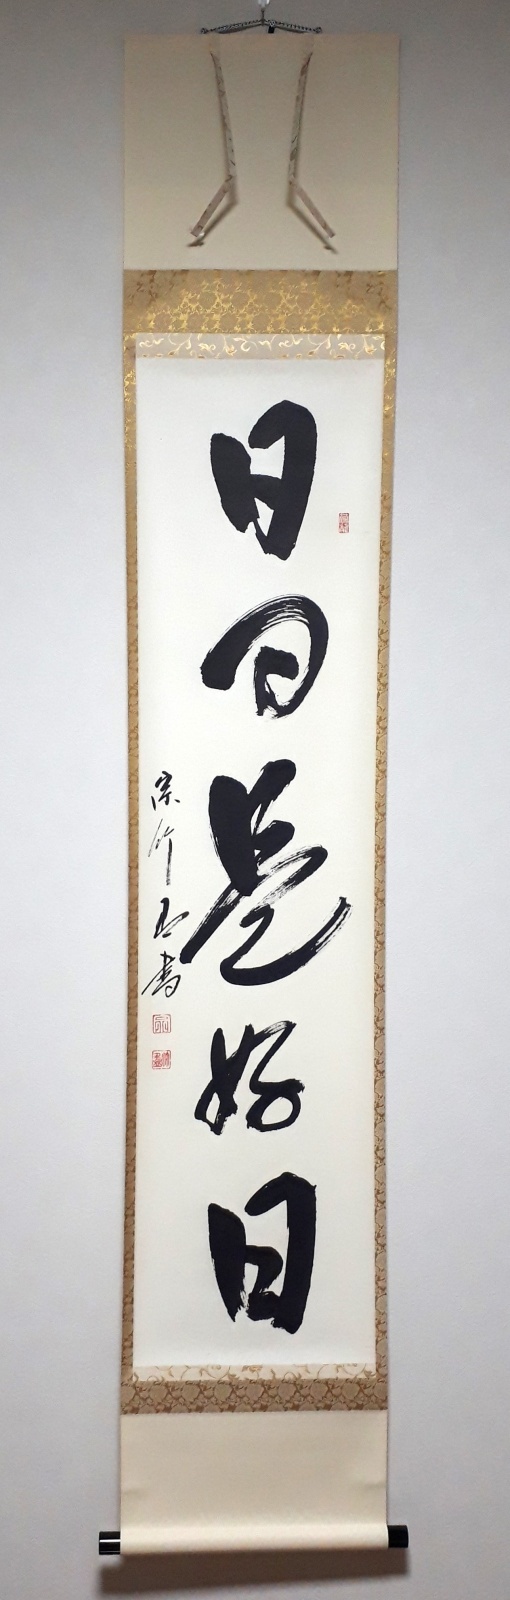 日日是好日
宗竹玄書